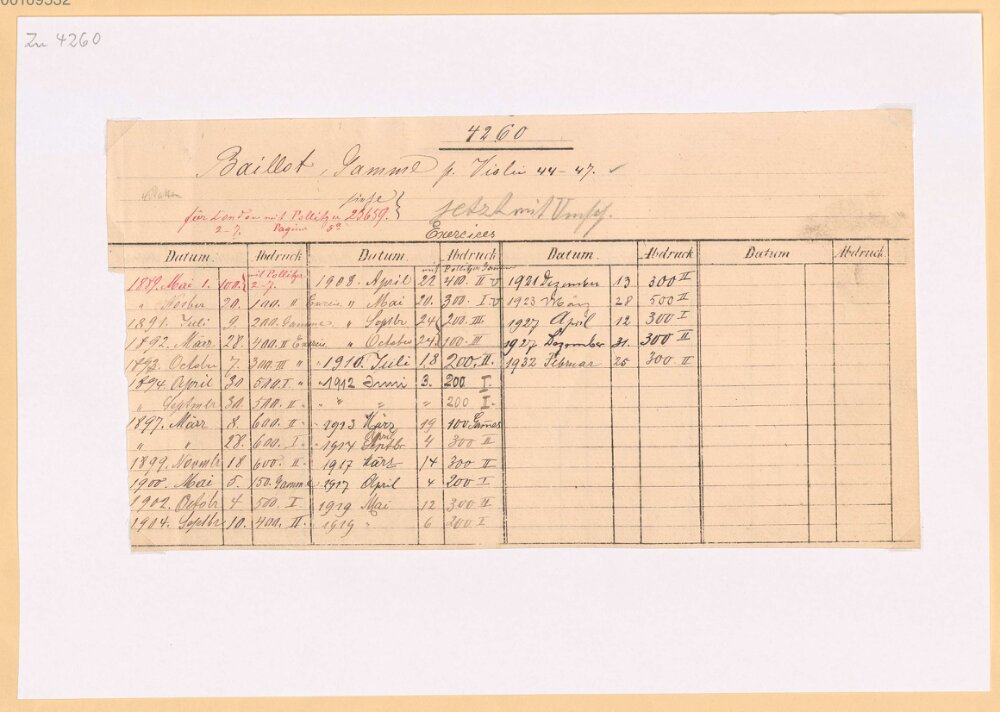 Zu 4260
4260
Baillot, Gamme p. Violin 44-47. ✓
siehe
für London mit Pollitzer 21659.
2-7. Pagina
jetzt mit Umschl.
Exercices
Datum. Abdruck Datum. Abdruck Datum. Abdruck Datum Abdruck.
1889. Mai 1. 100. mit Pollitzer 2-7.
" 20. 100. "
1891. Juli 9. 200. Gamme
1892. März 28. 400. II
1893. October 7. 300. III "
1894. April 30. 500. I "
" Septmbr 30. 500. II "
1897. März 8. 600. II "
" " 28. 600. I. "
1899. Novmbr 18 600. II "
1900. Mai 5. 150. Gamme
1902. Octobr 4 500. I
1904. Septbr 10. 400. II
1908. April 22 400. II
" Mai 20. 300. I
" Septbr 24 200. III.
" October 24. 100. III
1910. Juli 18 200. II.
1912 Juni 3. 200 I
" " " 200 I.
1913 März 19 100 Gammes
1914 April 4 300 II
1917 März 14 300 II
1917 April 4 200 I
1919 Mai 12 300 II
1919 " 6 200 I
1921 Dezember 13 300 II
1923 März 28 500 II
1927 April 12 300 I
1927 Dezember 31. 300 II
1932 Februar 25 300 II